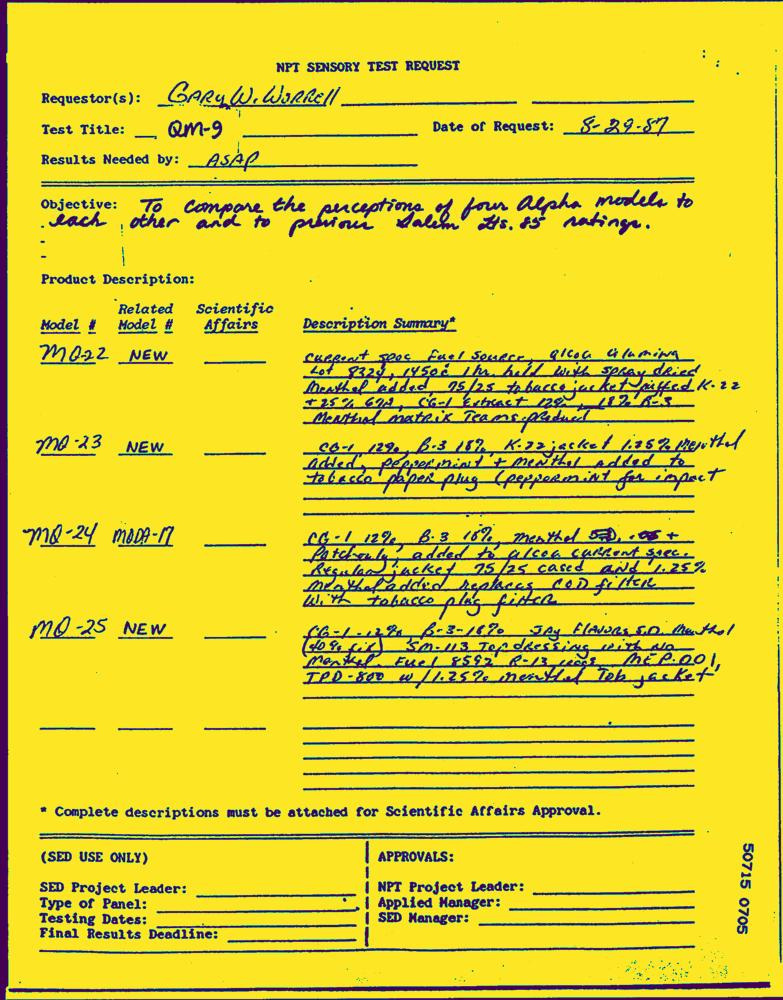 NPT SENSORY TEST REQUEST
Requestor(s): Gary W. Worrell
Test Title: QM-9 Date of Request: 8-29-87
Results Needed by: ASAP
Objective: To compare the perceptions of four Alpha models to
each other and to previous Salem Lts. 85 ratings.
Product Description:
Related Scientific
Model # Model # Affairs Description Summary*
MQ-22 NEW Current spec Fuel Source, alcoa alumina
Lot 8324, 1450c 1 hr. held with spray dried
Menthol added 75/25 tobacco jacket puffed K-22
+ 25% CG-1 Extract 12%, 18% B-3
Menthol matrix product
MQ-23 NEW CG-1 12%, B-3 18%, K-22 jacket 1.25% Menthol
Added, peppermint + menthol added to
tobacco paper plug (peppermint for impact
MQ-24 MODA-17 CG-1 12%, B-3 18%, menthol +
Patchouly, added to alcoa current spec.
Regular jacket 75/25 cased and 1.25%
menthol added replaces COD filter
With tobacco plug filter
MQ-25 NEW CG-1 12% B-3-18% Jay Flavors S.D. Menthol
SM-113 Top dressing with no
Menthol. Fuel 8592 R-13
TPD-800 w/1.25% menthol Tob jacket
* Complete descriptions must be attached for Scientific Affairs Approval.
(SED USE ONLY) APPROVALS:
SED Project Leader: NPT Project Leader:
Type of Panel: Applied Manager:
Testing Dates: SED Manager:
Final Results Deadline:
50715 0705